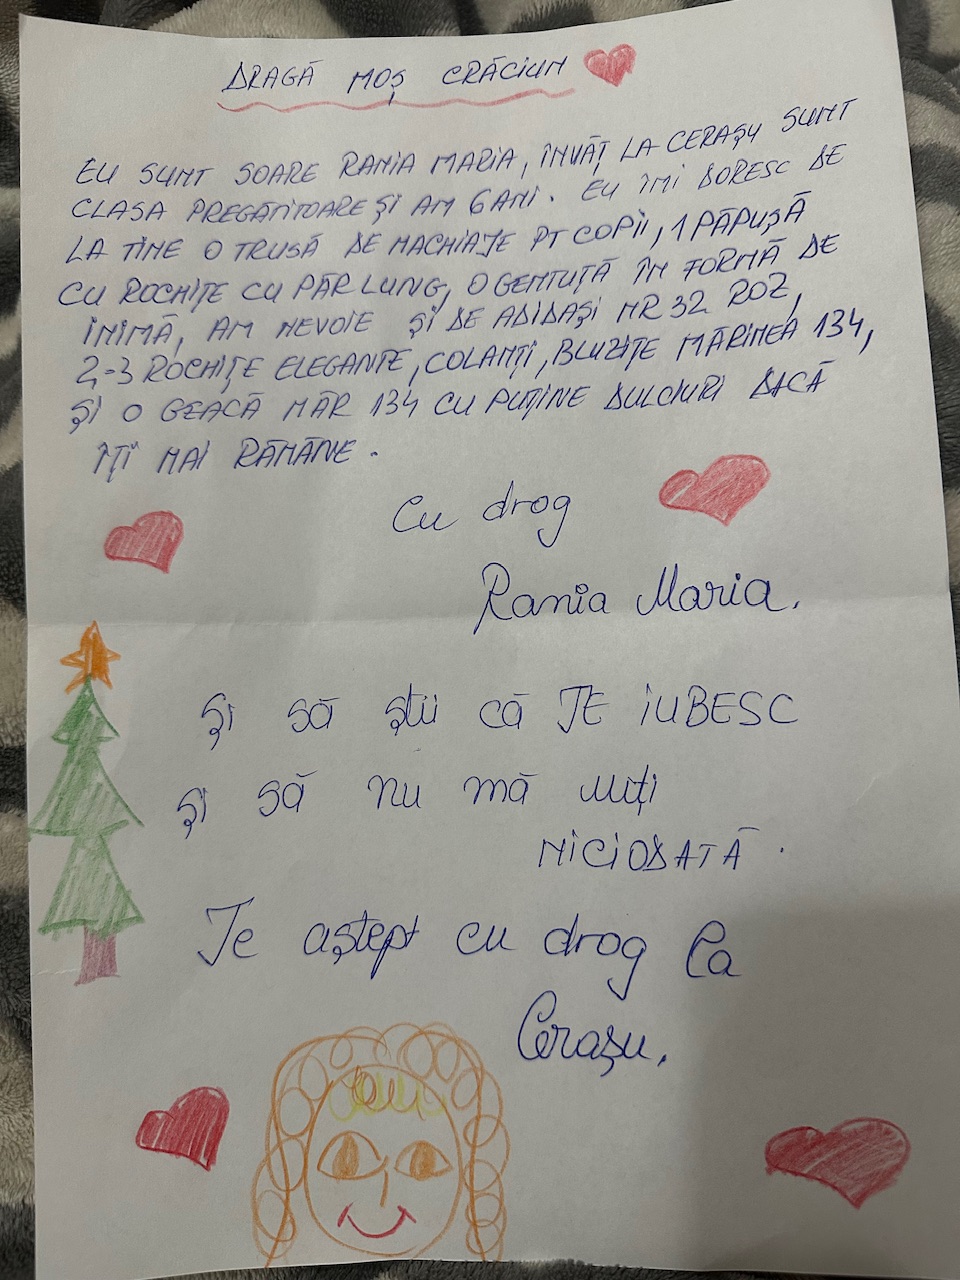 DRAGĂ MOȘ CRĂCIUN
EU SUNT SOARE RANIA MARIA, ÎNVĂȚ LA CERAȘU SUNT
CLASA PREGĂTITOARE ȘI AM 6 ANI. EU ÎMI DORESC DE
LA TINE O TRUSĂ DE MACHIAJE PT COPII, 1 PĂPUȘĂ
CU ROCHIȚE CU PĂR LUNG, O GENTUȚĂ ÎN FORMĂ DE
INIMĂ, AM NEVOIE ȘI DE ADIDAȘI NR 32 ROZ,
2-3 ROCHIȚE ELEGANTE, COLANȚI, BLUZIȚE MĂRIMEA 134,
ȘI O GEACĂ MĂR 134 CU PUȚINE DULCIURI DACĂ
ÎȚI MAI RĂMÂNE.
Cu drag
Rania Maria.
Și să știi că TE IUBESC
Și să nu mă uiți
NICIODATĂ.
Te aștept cu drag la
Cerașu.